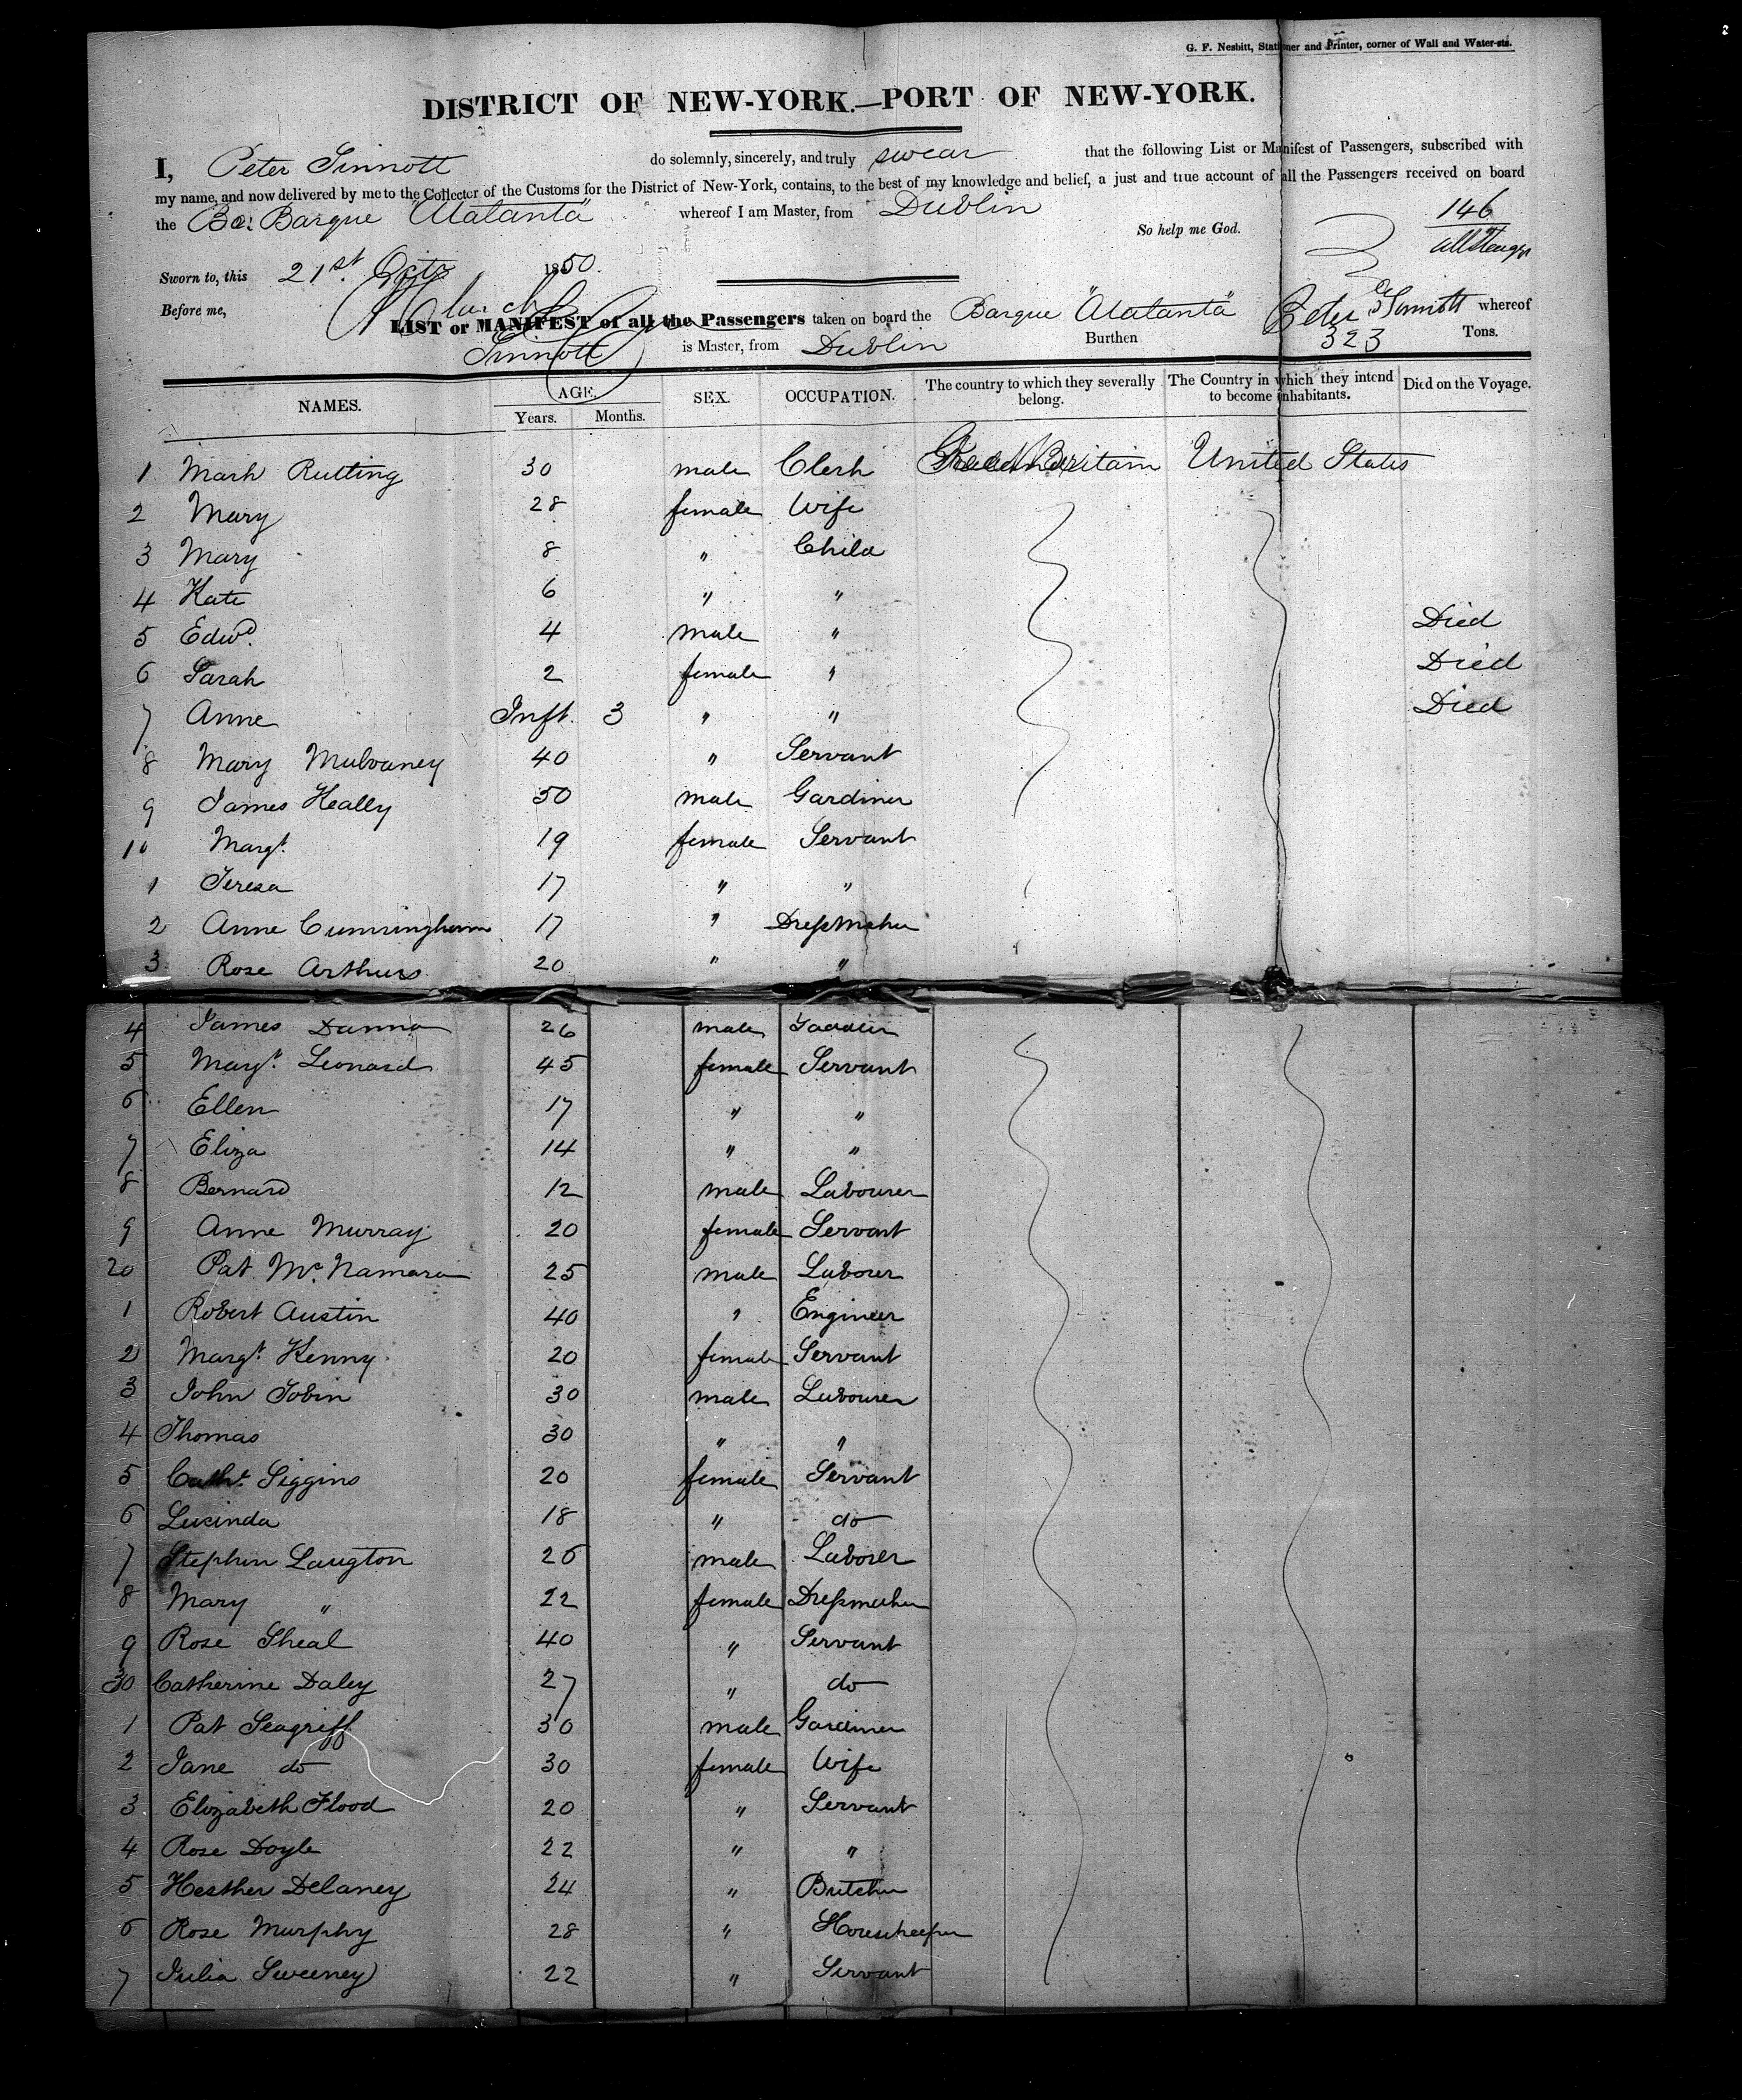 G. F. Nesbitt, Stationer and Printer, corner of Wall and Water-sts.
DISTRICT OF NEW-YORK.—PORT OF NEW-YORK.
I, Peter Sinnott do solemnly, sincerely, and truly swear that the following List or Manifest of Passengers, subscribed with
my name, and now delivered by me to the Collector of the Customs for the District of New-York, contains, to the best of my knowledge and belief, a just and true account of all the Passengers received on board
the Br: Barque "Atalanta" whereof I am Master, from Dublin
146
So help me God.
Sworn to, this 21st. Octr 1850.
Before me,
LIST or MANIFEST of all the Passengers taken on board the Barque "Atalanta" Peter Sinnott whereof
Sinnott is Master, from Dublin Burthen 323 Tons.
NAMES. AGE. SEX. OCCUPATION. The country to which they severally belong. The Country in which they intend to become inhabitants. Died on the Voyage.
Years. Months.
1 Mark Rutting 30 male Clerk Great Britain United States
2 Mary 28 female Wife
3 Mary 8 " Child
4 Kate 6 " "
5 Edwd. 4 male " Died
6 Sarah 2 female " Died
7 Anne Inft. 3 " " Died
8 Mary Mulvaney 40 " Servant
9 James Heally 50 male Gardiner
10 Margt. 19 female Servant
1 Teresa 17 " "
2 Anne Cunningham 17 " Dressmaker
3 Rose Arthurs 20 " "
4 James Dunna 26 male Saddler
5 Margt. Leonard 45 female Servant
6 Ellen 17 " "
7 Eliza 14 " "
8 Bernard 12 male Labourer
9 Anne Murray 20 female Servant
20 Pat McNamara 25 male Labourer
1 Robert Austin 40 " Engineer
2 Margt. Kenny 20 female Servant
3 John Tobin 30 male Labourer
4 Thomas 30 " "
5 Cathe. Siggins 20 female Servant
6 Lucinda 18 " do
7 Stephen Laugton 26 male Laborer
8 Mary " 22 female Dressmaker
9 Rose Sheal 40 " Servant
30 Catherine Daley 27 " do
1 Pat Seagriff 30 male Gardiner
2 Jane do 30 female Wife
3 Elizabeth Flood 20 " Servant
4 Rose Doyle 22 " "
5 Hesther Delaney 24 " Butcher
6 Rose Murphy 28 " Housekeeper
7 Julia Sweeney 22 " Servant